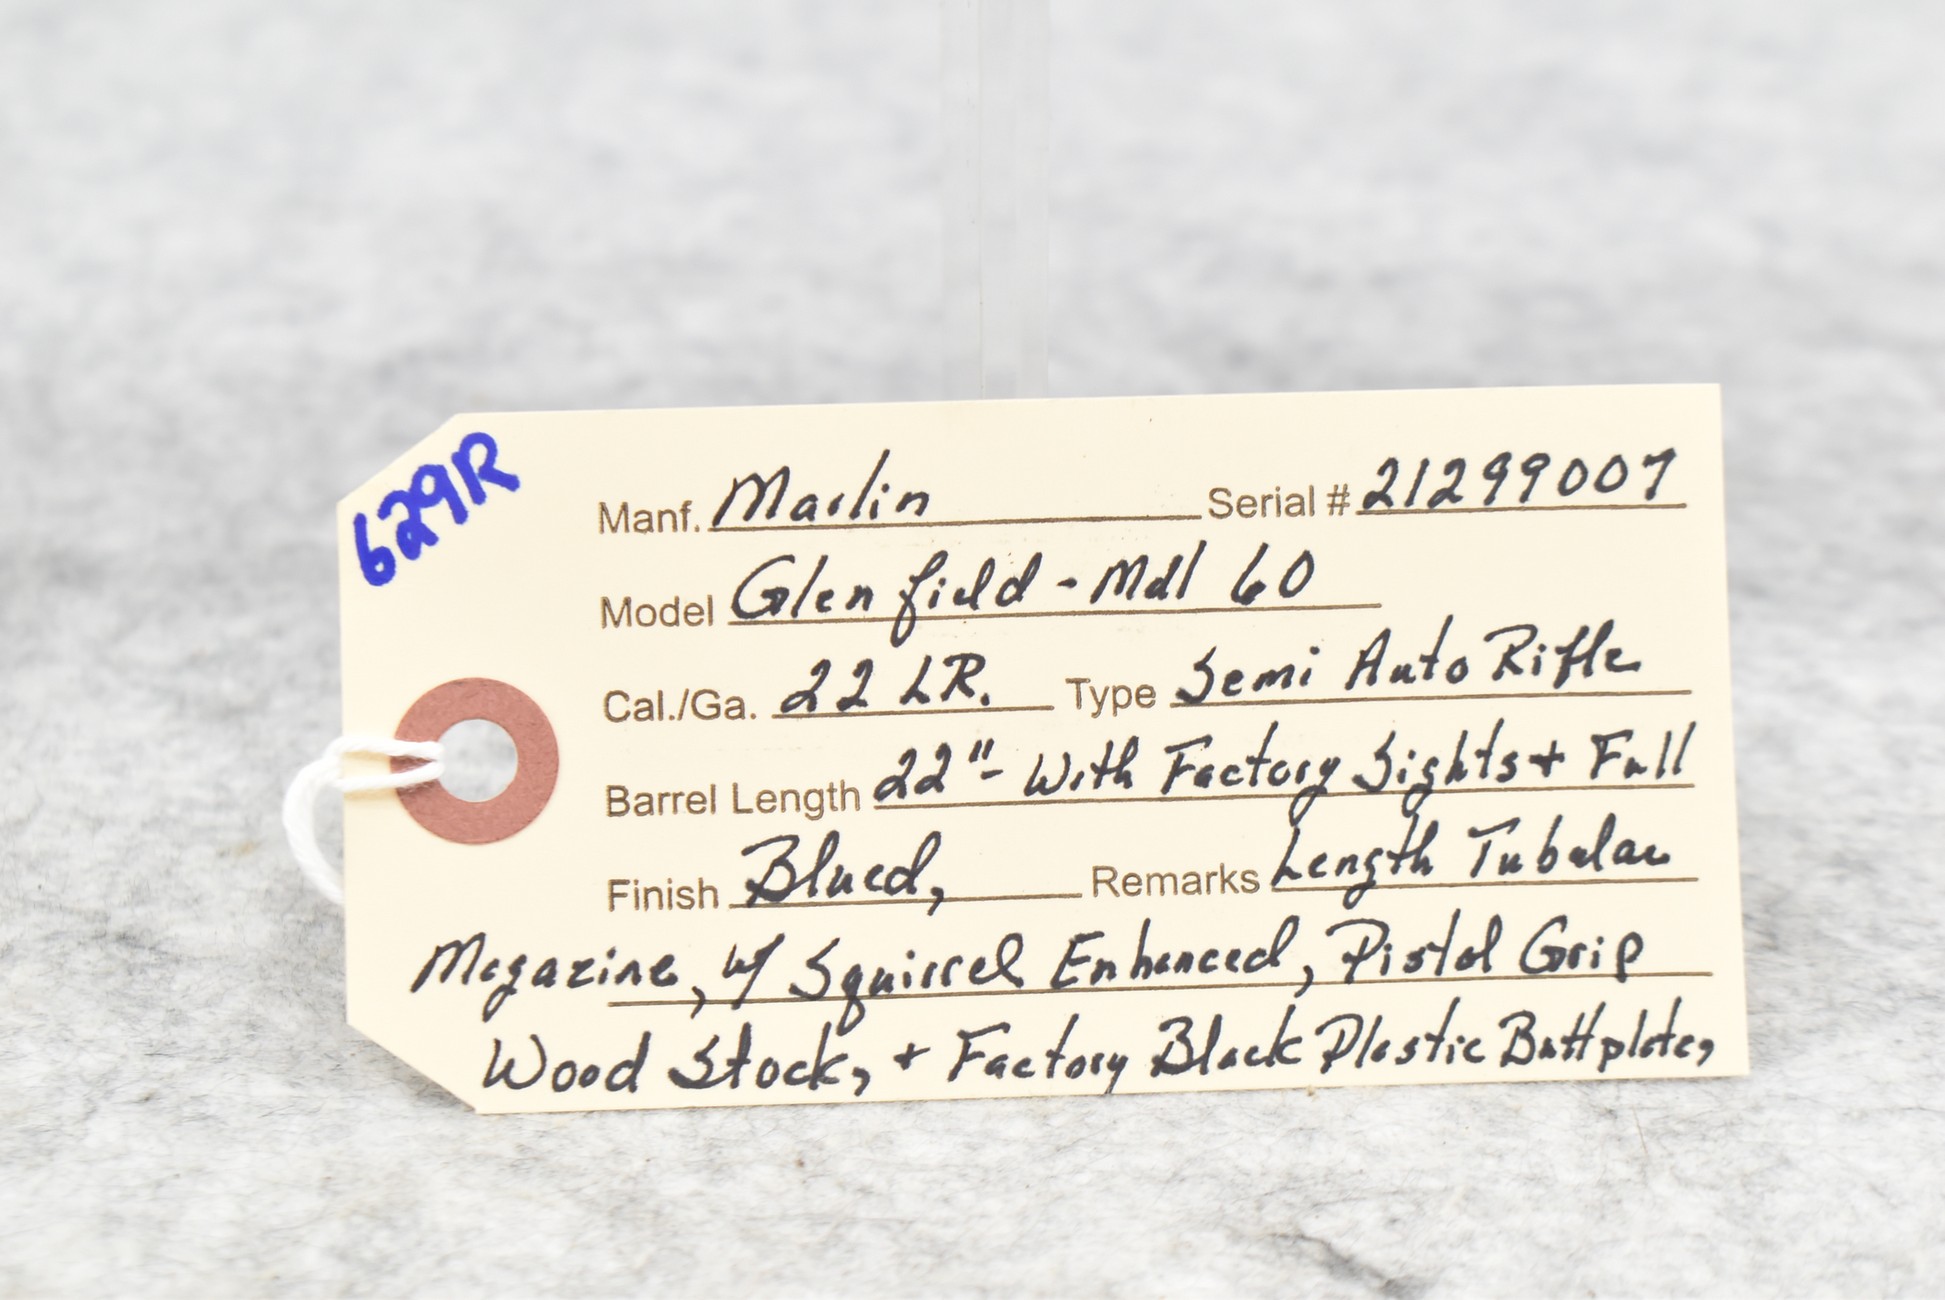 629R
Manf. Marlin Serial # 21299007
Model Glenfield - Mdl 60
Cal./Ga. 22 LR. Type Semi Auto Rifle
Barrel Length 22" - With Factory Sights + Full
Finish Blued, Remarks Length Tubular
Magazine, w/ Squirrel Enhanced, Pistol Grip
Wood Stock, + Factory Black Plastic Buttplate,